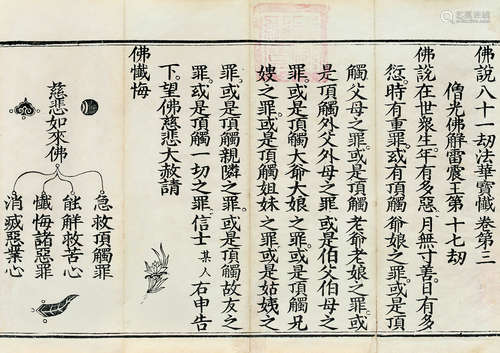 佛說八十一劫法華寶懺卷第三
僧光佛解雷震王第十七劫
佛說在世眾生年有多惡月無寸善日有多
愆時有重罪或有頂觸爺娘之罪或是頂
觸父母之罪或是頂觸老爺老娘之罪或
是頂觸外父外母之罪或是伯父伯母之
罪或是頂觸大爺大娘之罪或是頂觸兄
嫂之罪或是頂觸姐妹之罪或是姑姨之
罪或是頂觸親隣之罪或是頂觸故友之
罪或是頂觸一切之罪信士某人右申告
下望佛慈悲大赦請
佛懺悔
慈悲如來佛
急救頂觸罪
能解救苦心
懺悔諸惡罪
消滅惡業心